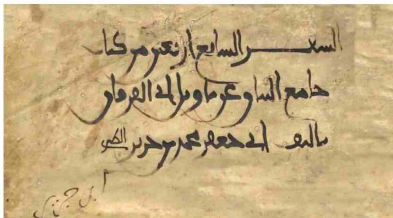 السفر السابع أربعين من كتاب
جامع البيان عن تأويل آي الفرقان
تأليف أبي جعفر محمد بن جرير الطبري